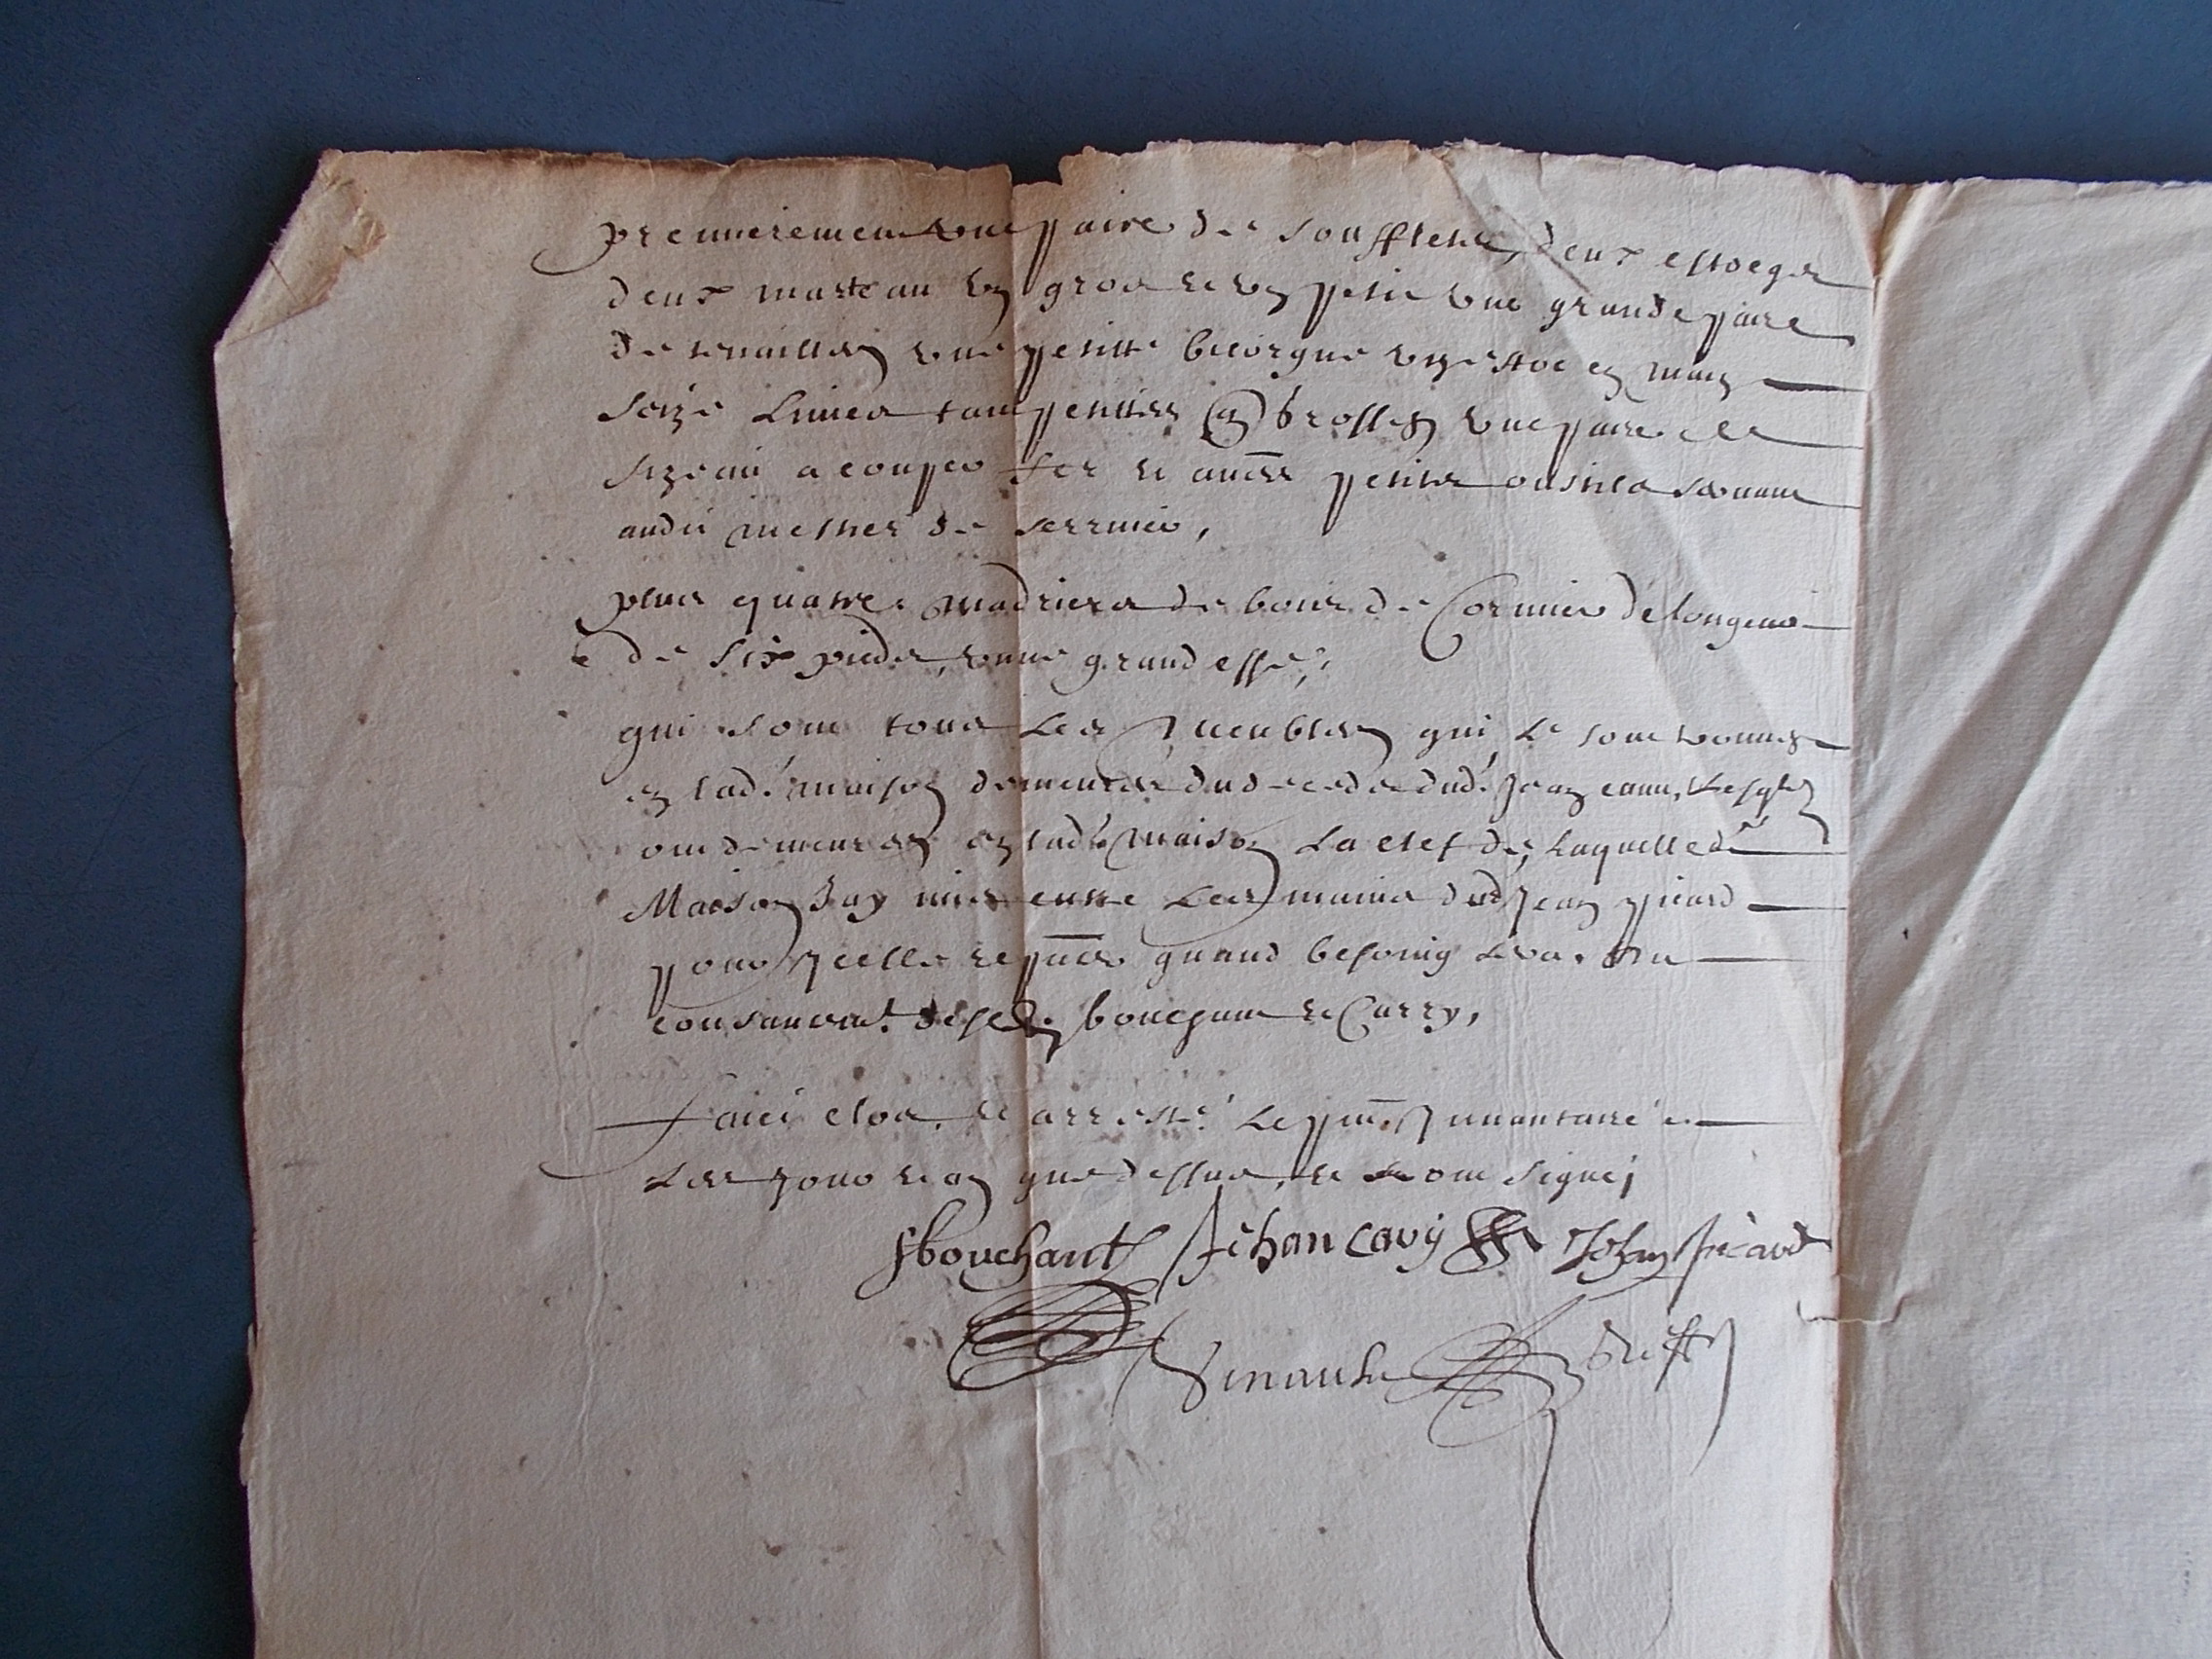 premierement une paire de soufflets, deux estocqs
deux marteau un gros et un petit une grande paire
de tenailles une petitte bicorgne un estoc en main
seize limes tant petittes que brosses une paire de
sizeau a couper fer et autres petits oustils servant
audit mestier de serrurier,
plus quatre madriers de bois de Cormier de longeur
de six pieds, une grand esse,
qui sont tous les meubles qui se sont trouvez
en lad. maison demeurés du deceds dud. Jean cauu, Lesqls
ont demeurez en lad. maison La clef de, Laquelle de
Maison Jay mis entre Les mains dud Jean picard
pour Jcelle repnter quand besoing sera. Du
consantemt. desd. bouchant et Cavy,
Faict clos, et arresté Le pnt. Jnvantaire
Les jour et an que dessus, et ont signé
f bouchant Jehan cavÿ Jehan picard
Vinault Greff